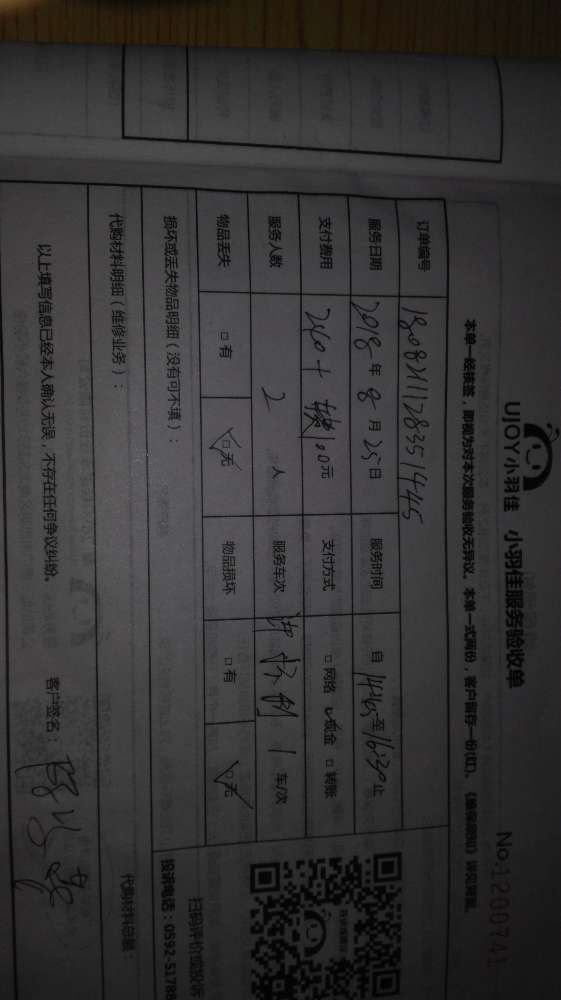 UJOY小羽佳 小羽佳服务验收单
No:1200741
本单一经核签，即视为对本次服务验收无异议。本单一式两份，客户留存一份(红)。
订单编号 180821112835 1445
服务日期 2018年8月25日 服务时间 自14:45至16:30止
支付费用 240+ 100元 支付方式 □网络 ☑现金 □转账
服务人数 2人 服务车次 1车/次
物品丢失 □有 ☑无 物品损坏 □有 ☑无
损坏或丢失物品明细（没有可不填）：
扫码评价或投诉
投诉电话：0592-5178
代购材料明细（维修业务）：
代购材料总额：
以上填写信息已经本人确认无误，不存在任何争议纠纷。
客户签名：